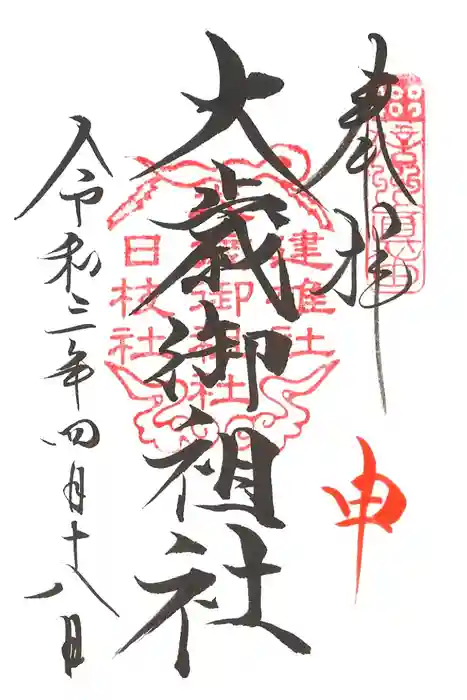 奉拝
申
大歳御祖社
建雄社
日枝社
令和三年四月十八日